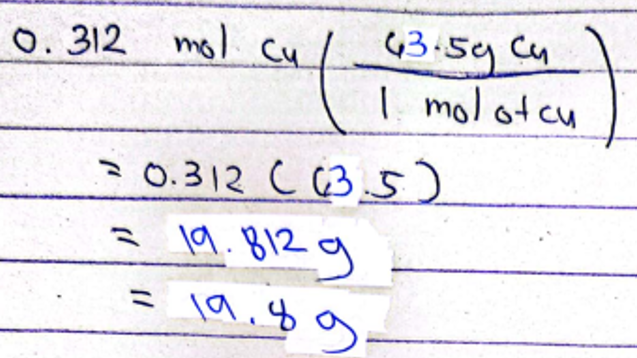 0.312 mol Cu ( 63.5g Cu
1 mol of Cu )
= 0.312 (63.5)
= 19.812 g
= 19.8 g